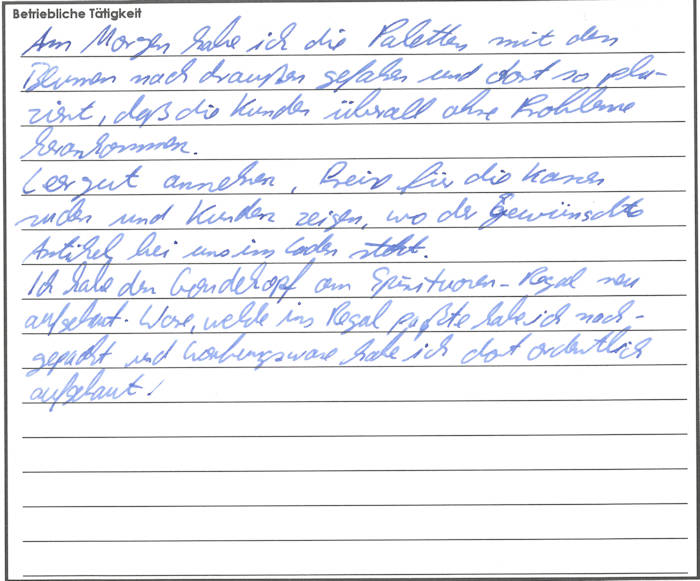 Betriebliche Tätigkeit
Am Morgen habe ich die Paletten mit den
Blumen nach draußen gefahren und dort so pla-
ziert, daß die Kunden überall ohne Probleme
herankommen.
Leergut annehmen, Preise für die Kassen
suchen und Kunden zeigen, wo der gewünschte
Artikel bei uns im Laden steht.
Ich habe den Gondelkopf am Spirituosen-Regal neu
aufgebaut. Ware, welche ins Regal paßte habe ich nach-
gepackt und Werbungsware habe ich dort ordentlich
aufgebaut!